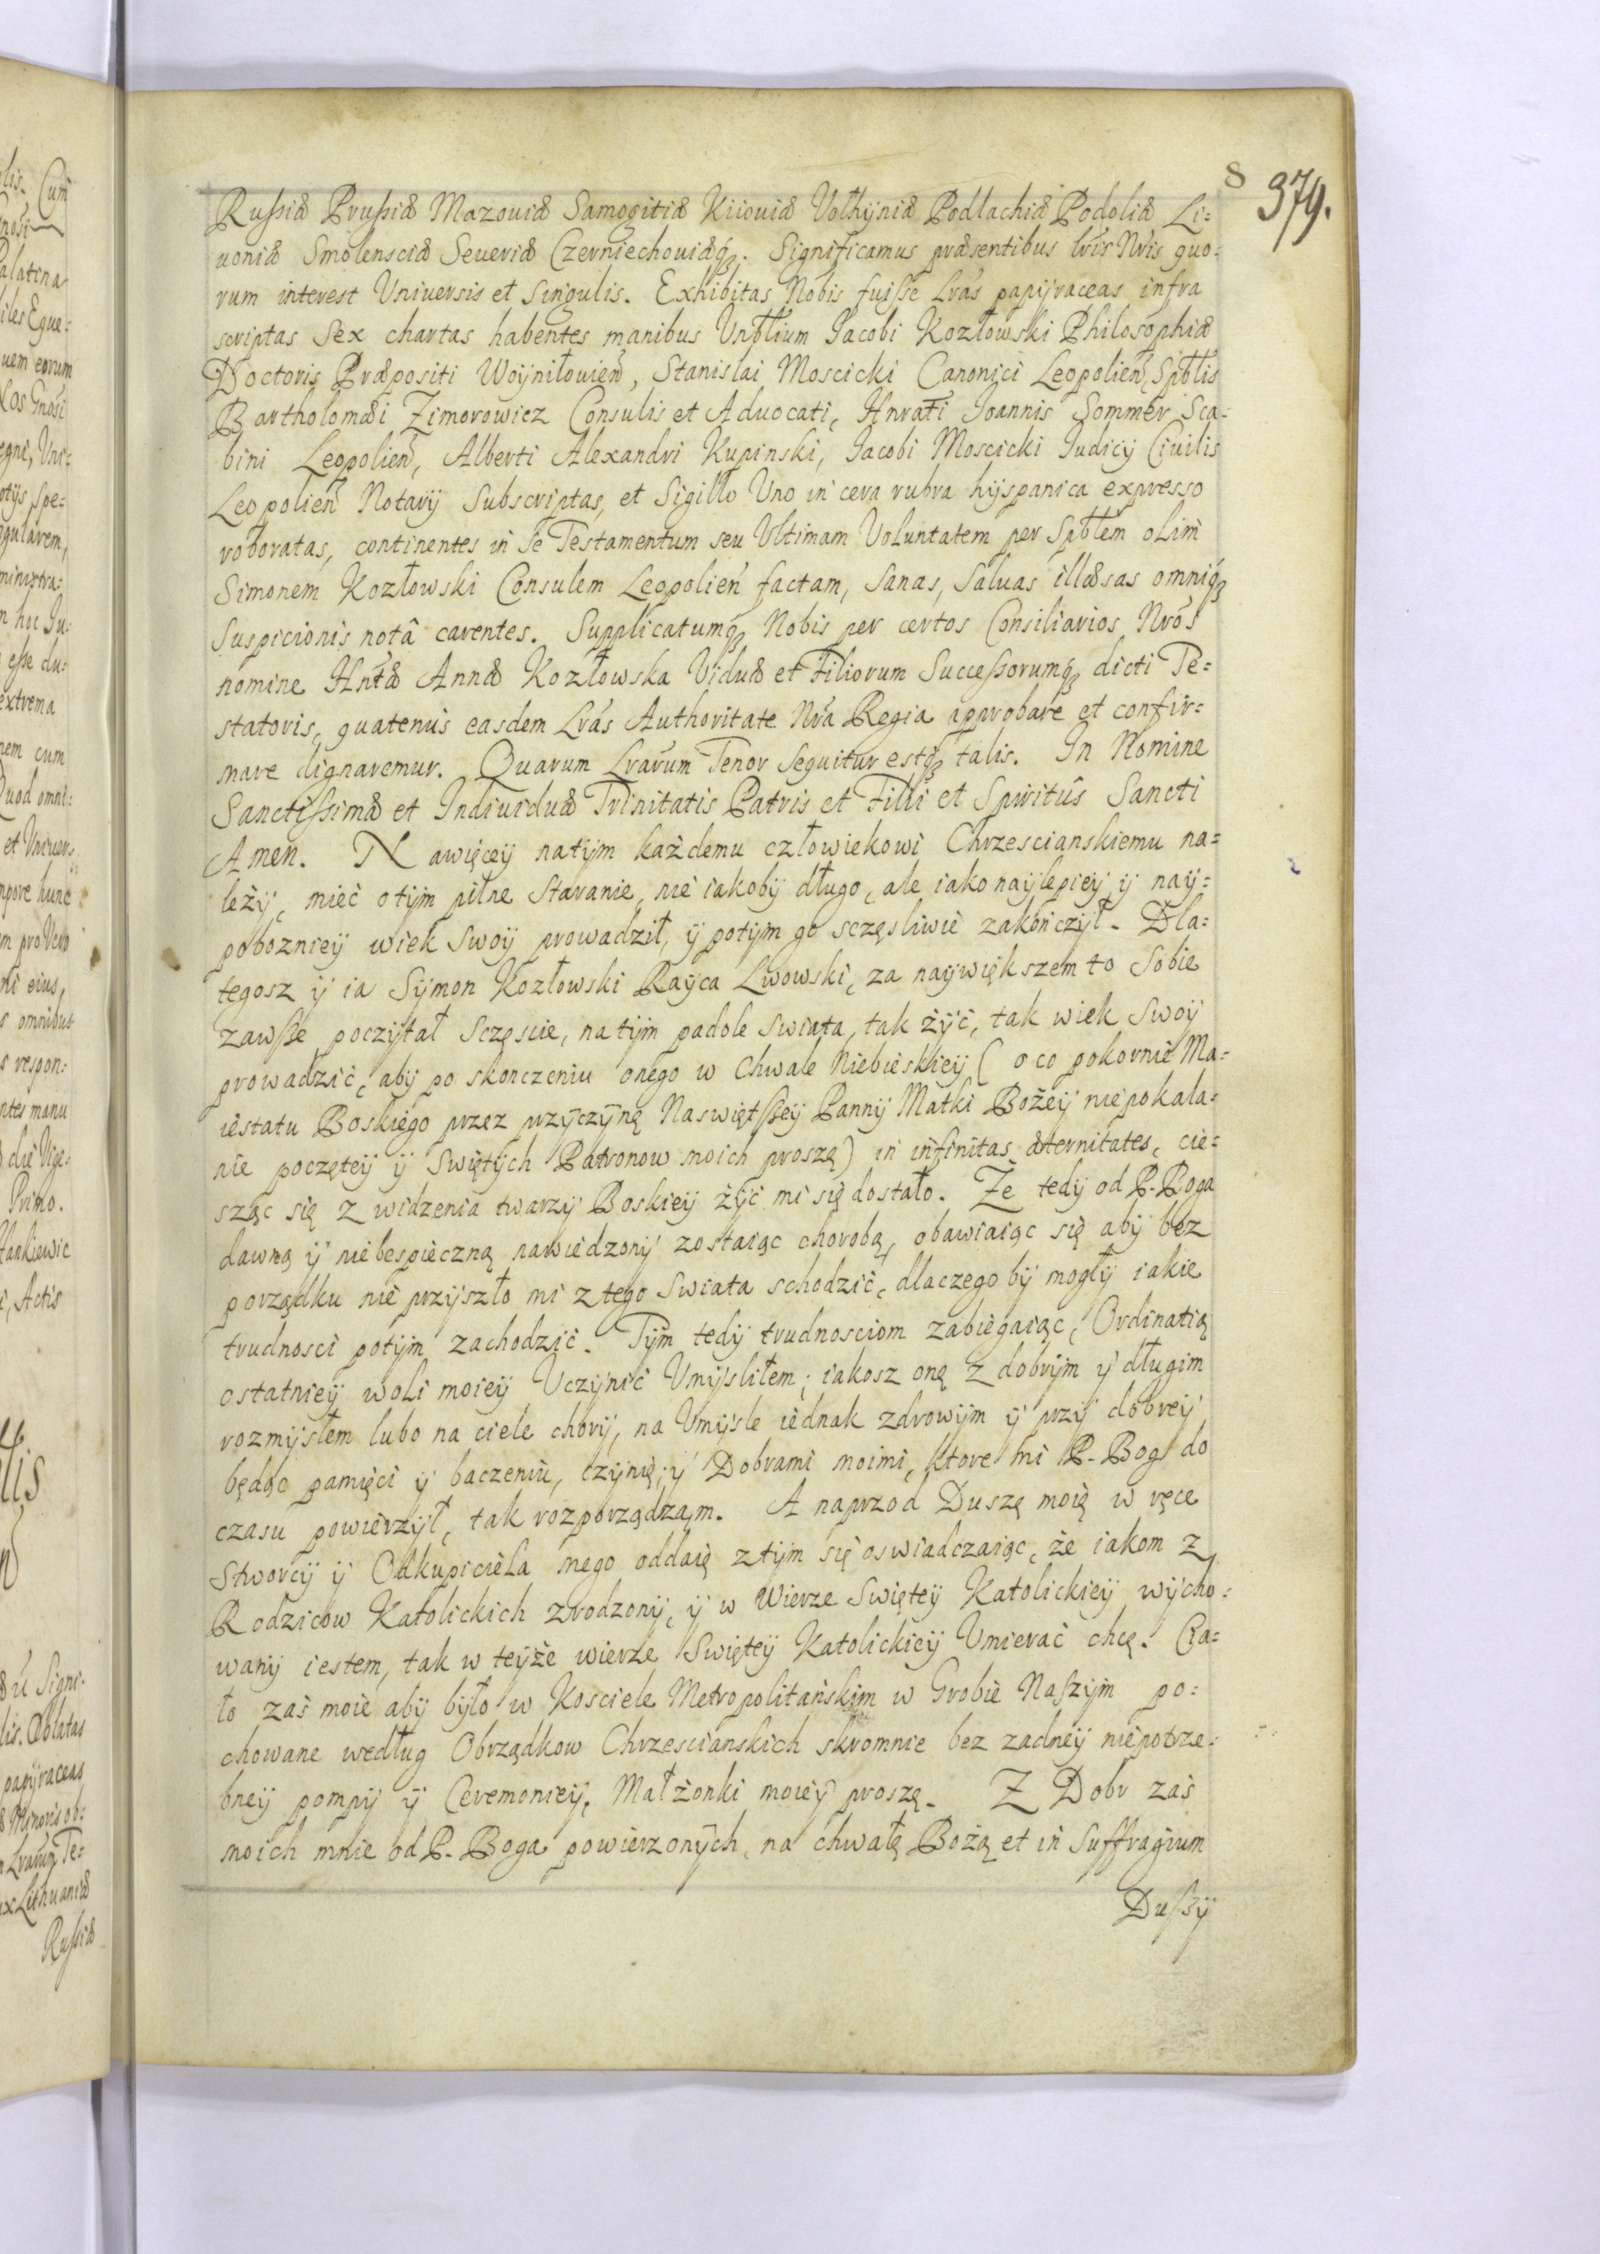 8 379.
Russiæ Prussiæ Mazouiæ Samogitiæ Kiiouiæ Volhyniæ Podlachiæ Podoliæ Li=
uoniæ Smolensciæ Seueriæ Czerniechouiæq;. Significamus præsentibus lris Nris quo=
rum interest Uniuersis et Singulis. Exhibitas Nobis fuisse Lras papyraceas infra
scriptas Sex chartas habentes manibus Unblium Iacobi Kozłowski Philosophiæ
Doctoris Præpositi Woyniłouien, Stanislai Moscicki Canonici Leopolien, Spblis
Bartholomæi Zimorowicz Consulis et Aduocati, Hnrati Ioannis Sommer Sca=
bini Leopolien, Alberti Alexandri Kupinski, Iacobi Moscicki Iudicy Ciuilis
Leopolien Notarij Subscriptas, et Sigillo Uno in cera rubra hyspanica expresso
roboratas, continentes in se Testamentum seu Ultimam Voluntatem per Spblem olim
Simonem Kozłowski Consulem Leopolien factam, Sanas, Saluas illæsas omniq;
Suspicionis notâ carentes. Supplicatumq; Nobis per certos Consiliarios Nros
nomine Hntæ Annæ Kozłowska Viduæ et Filiorum Successorumq; dicti Te=
statoris, quatenus easdem Lras Authoritate Nra Regia approbare et confir=
mare dignaremur. Quarum Lrarum Tenor Sequitur estq; talis. In Nomine
Sanctissimæ et Indiuiduæ Trinitatis Patris et Filii et Spiritûs Sancti
Amen. Nawięcey natym każdemu człowiekowi Chrzescianskiemu na=
leży, mieć otym pilne Staranie, nie iakoby długo, ale iako naylepiey y nay=
pobozniey wiek Swoy prowadził, y potym go sczęsliwie zakończył. Dla=
tegosz y ia Symon Kozłowski Rayca Lwowski, za naywiększem to Sobie
zawsse poczytał Sczęscie, na tym padole Swiata, tak żyć, tak wiek Swoy
prowadzić, aby po skonczeniu onego w Chwale Niebieskiey ( o co pokornie Ma=
iestatu Boskiego przez przyczynę Naswiętszey Panny Matki Bożey niepokala=
nie poczętey y Swiętych Patronow moich proszę) in infinitas æternitates, cie=
sząc się z widzenia twarzy Boskiey żyć mi się dostało. Że tedy od P. Boga
dawną y niebespieczną nawiedzony zostaiąc chorobą, obawiaiąc się aby bez
porządku nie przyszło mi z tego Swiata schodzić, dlaczego by mogły iakie
trudnosci potym zachodzić. Tym tedy trudnosciom zabiegaiąc, Ordinatią
ostatniey woli moiey Uczynić Umyslilem; iakosz oną z dobrym y długim
rozmysłem lubo na ciele chory, na Umysle iednak zdrowym y przy dobrey
będąc pamięci y baczeniu, czynię; y Dobrami moimi, ktore mi P. Bog do
czasu powierzył, tak rozporządzam. A naprzod Duszę moię w ręce
Stworcy y Odkupiciela mego oddaię z tym się oswiadczaiąc, że iakom z
Rodzicow Katolickich zrodzony, y w Wierze Swiętey Katolickiey wycho=
wany iestem, tak w teyże wierze Swiętey Katolickiey Umierać chcę. Cia=
ło zaś moie aby było w Kosciele Metropolitańskim w Grobie Naszym po=
chowane według Obrządkow Chrzescianskich skromnie bez zadney niepotrze=
bney pompy y Ceremoniey, Małżonki moiey proszę. Z Dobr zaś
moich mnie od P. Boga powierzonych, na chwałę Bożą et in Suffragium
Duszy